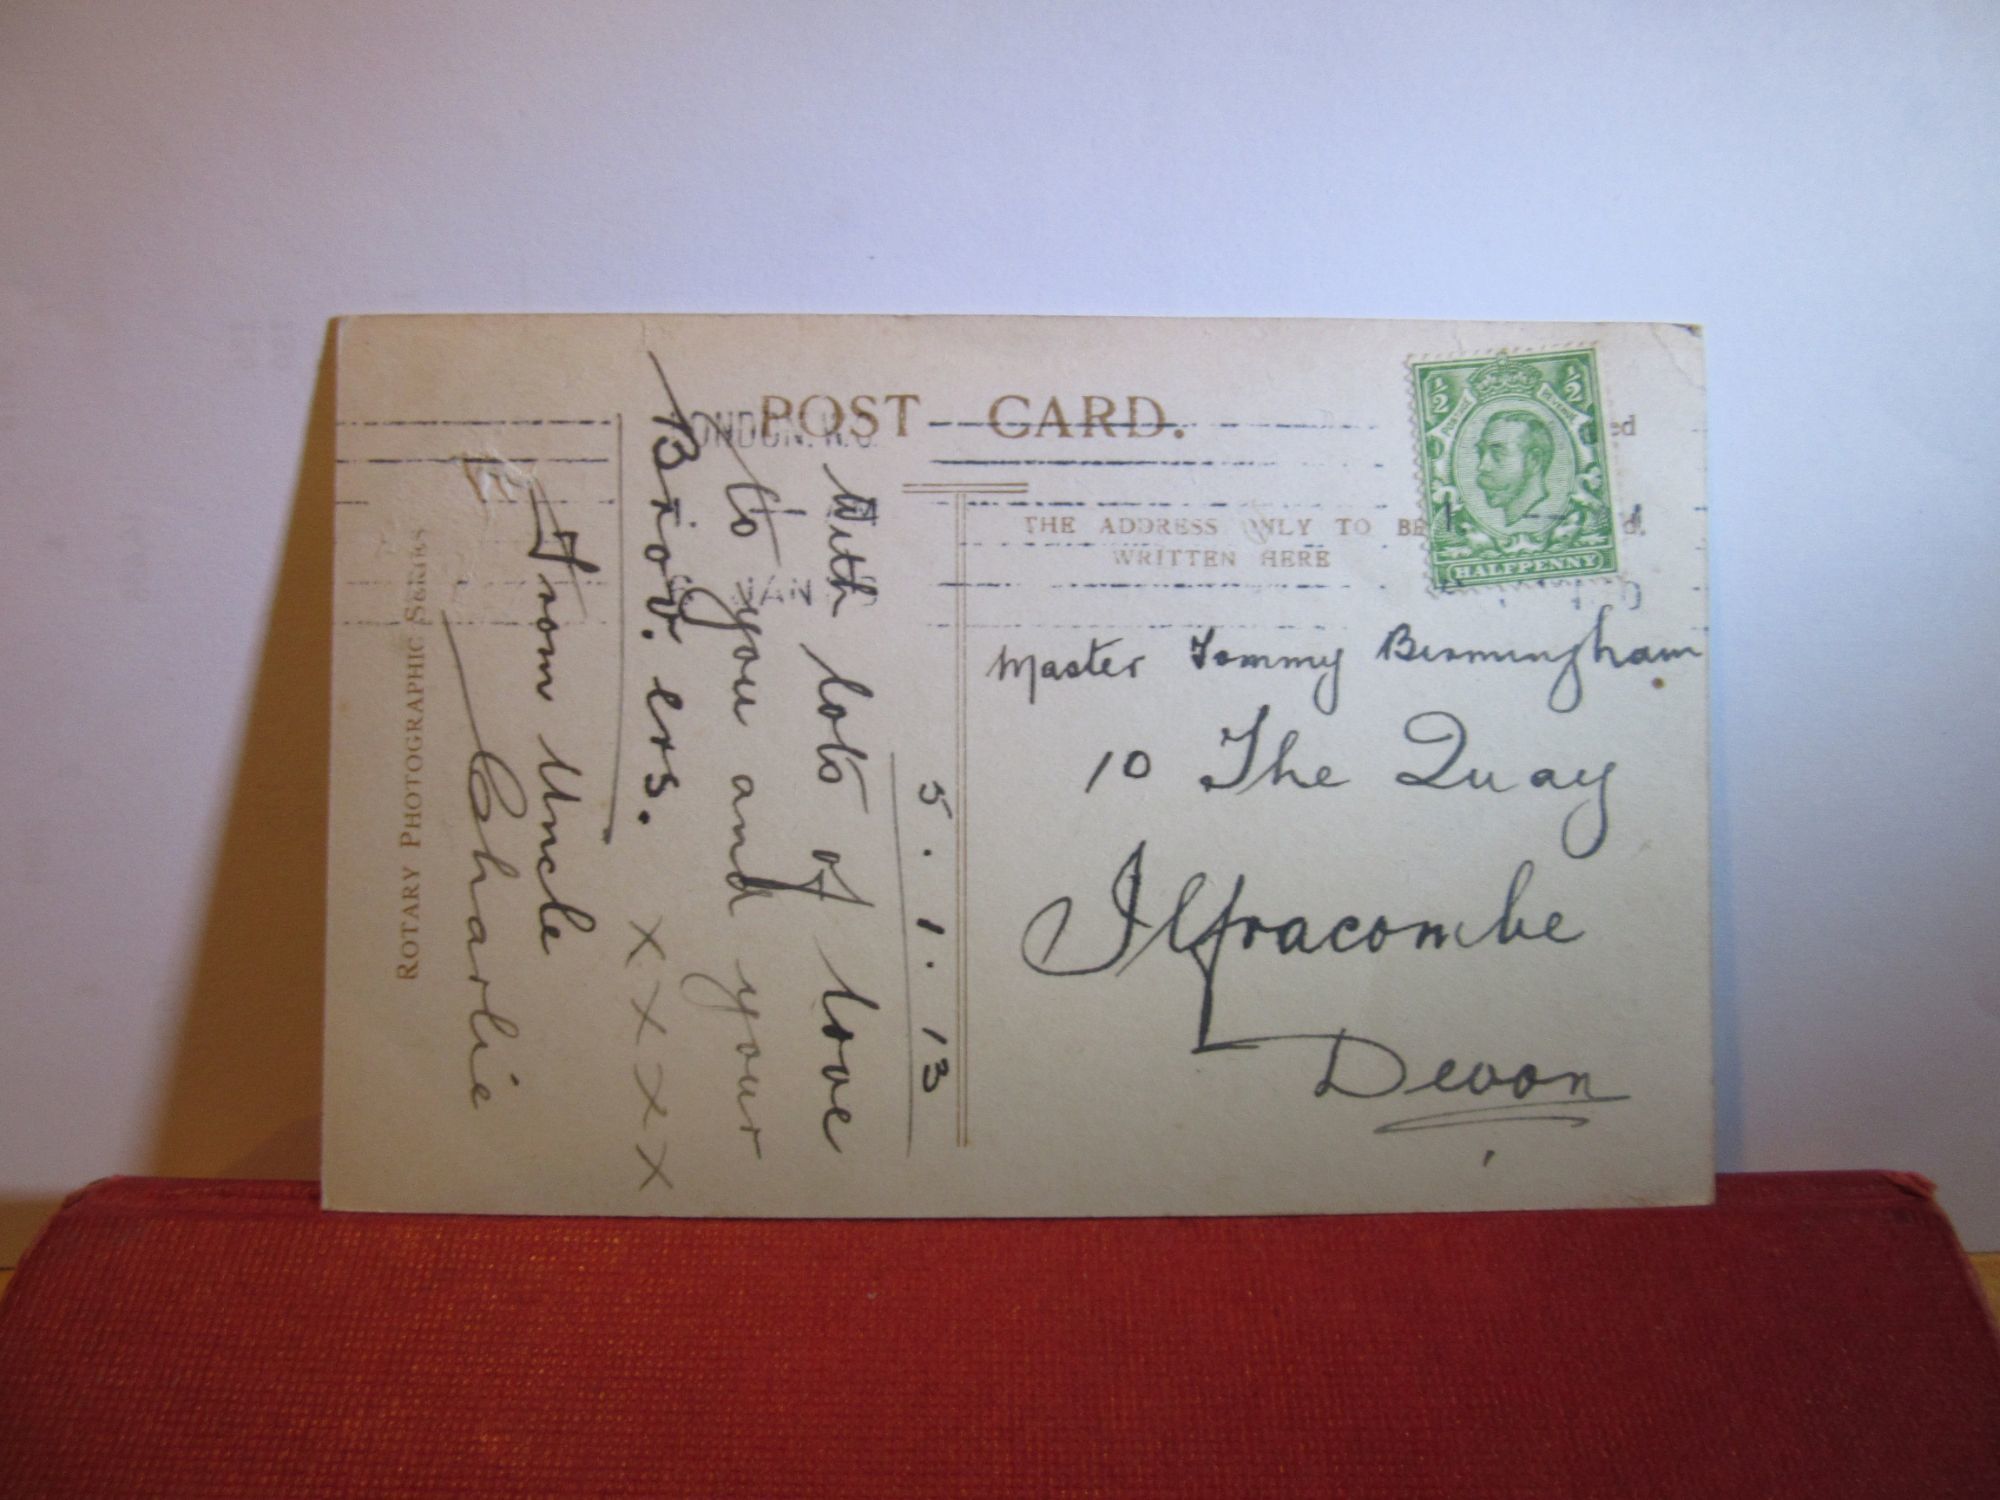 POST CARD.
LONDON. W.C.
JAN
THE ADDRESS ONLY TO BE
WRITTEN HERE
ed
d.
½ ½
POSTAGE REVENUE
HALFPENNY
5 . 1 . 13
With lots of love
to you and your
Broth. ers. X X X X
From Uncle
Charlie
ROTARY PHOTOGRAPHIC SERIES
Master Tommy Birmingham
10 The Quay
Ilfracombe
Devon